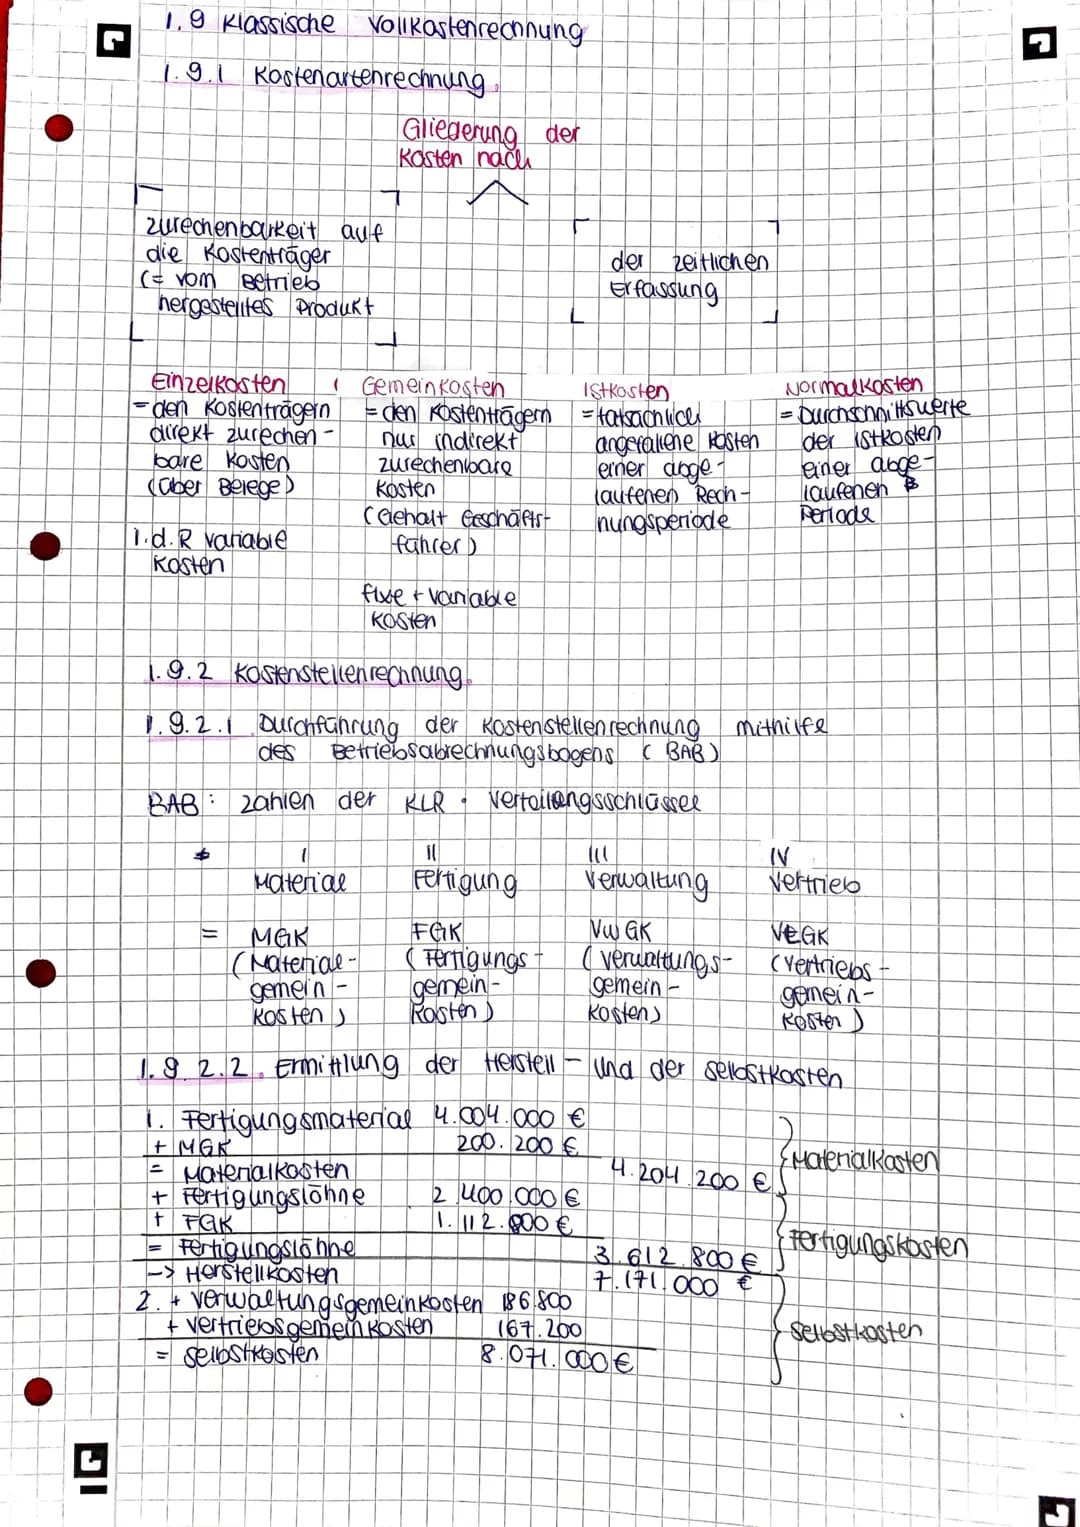 1.9 Klassische Vollkostenrechnung
1.9.1 Kostenartenrechnung
Gliederung der
Kosten nach
zurechenbarkeit auf
die Kostenträger
(= vom Betrieb
hergestelltes Produkt
der zeitlichen
Erfassung
Einzelkosten
= den Kostenträgern
direkt zurechen-
bare Kosten
(über Belege)
i.d.R variable
Kosten
Gemeinkosten
= den Kostenträgern
nur indirekt
zurechenbare
Kosten
(Gehalt Geschäfts-
führer)
fixe + variable
Kosten
Istkosten
= tatsächlich
angefallene Kosten
einer abge-
laufenen Rech-
nungsperiode
Normalkosten
= Durchschnittswerte
der Istkosten
einer abge-
laufenen
Periode
1.9.2 Kostenstellenrechnung
1.9.2.1 Durchführung der Kostenstellenrechnung mithilfe
des Betriebsabrechnungsbogens (BAB)
BAB: Zahlen der KLR · Verteilungsschlüssel
I II III IV
Material Fertigung Verwaltung Vertrieb
= MGK FGK VwGK VEGK
(Material- (Fertigungs- (Verwaltungs- (Vertriebs-
gemein- gemein- gemein- gemein-
kosten) kosten) kosten) kosten)
1.9.2.2. Ermittlung der Herstell- und der Selbstkosten
1. Fertigungsmaterial 4.004.000 €
+ MGK 200.200 €
= Materialkosten 4.204.200 € Materialkosten
+ Fertigungslöhne 2.400.000 €
+ FGK 1.112.800 €
= Fertigungslöhne 3.612.800 € Fertigungskosten
-> Herstellkosten 7.171.000 €
2. + Verwaltungsgemeinkosten 186.800
+ Vertriebsgemeinkosten 167.200 Selbstkosten
= Selbstkosten 8.071.000 €